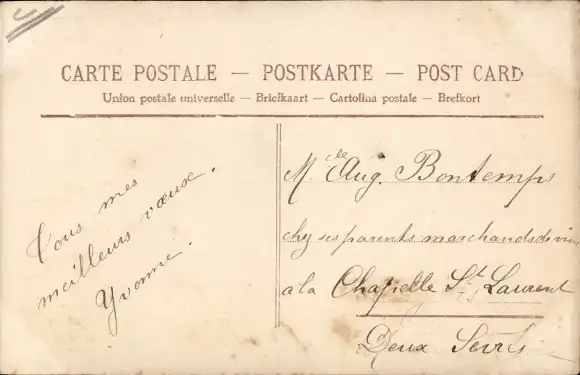 CARTE POSTALE — POSTKARTE — POST CARD
Union postale universelle — Briefkaart — Cartolina postale — Brefkort
Tous mes
meilleurs vœux.
Yvonne.
Mlle Aug. Bontemps
chez ses parents marchands de vins
a la Chapelle St Laurent
Deux Sevres